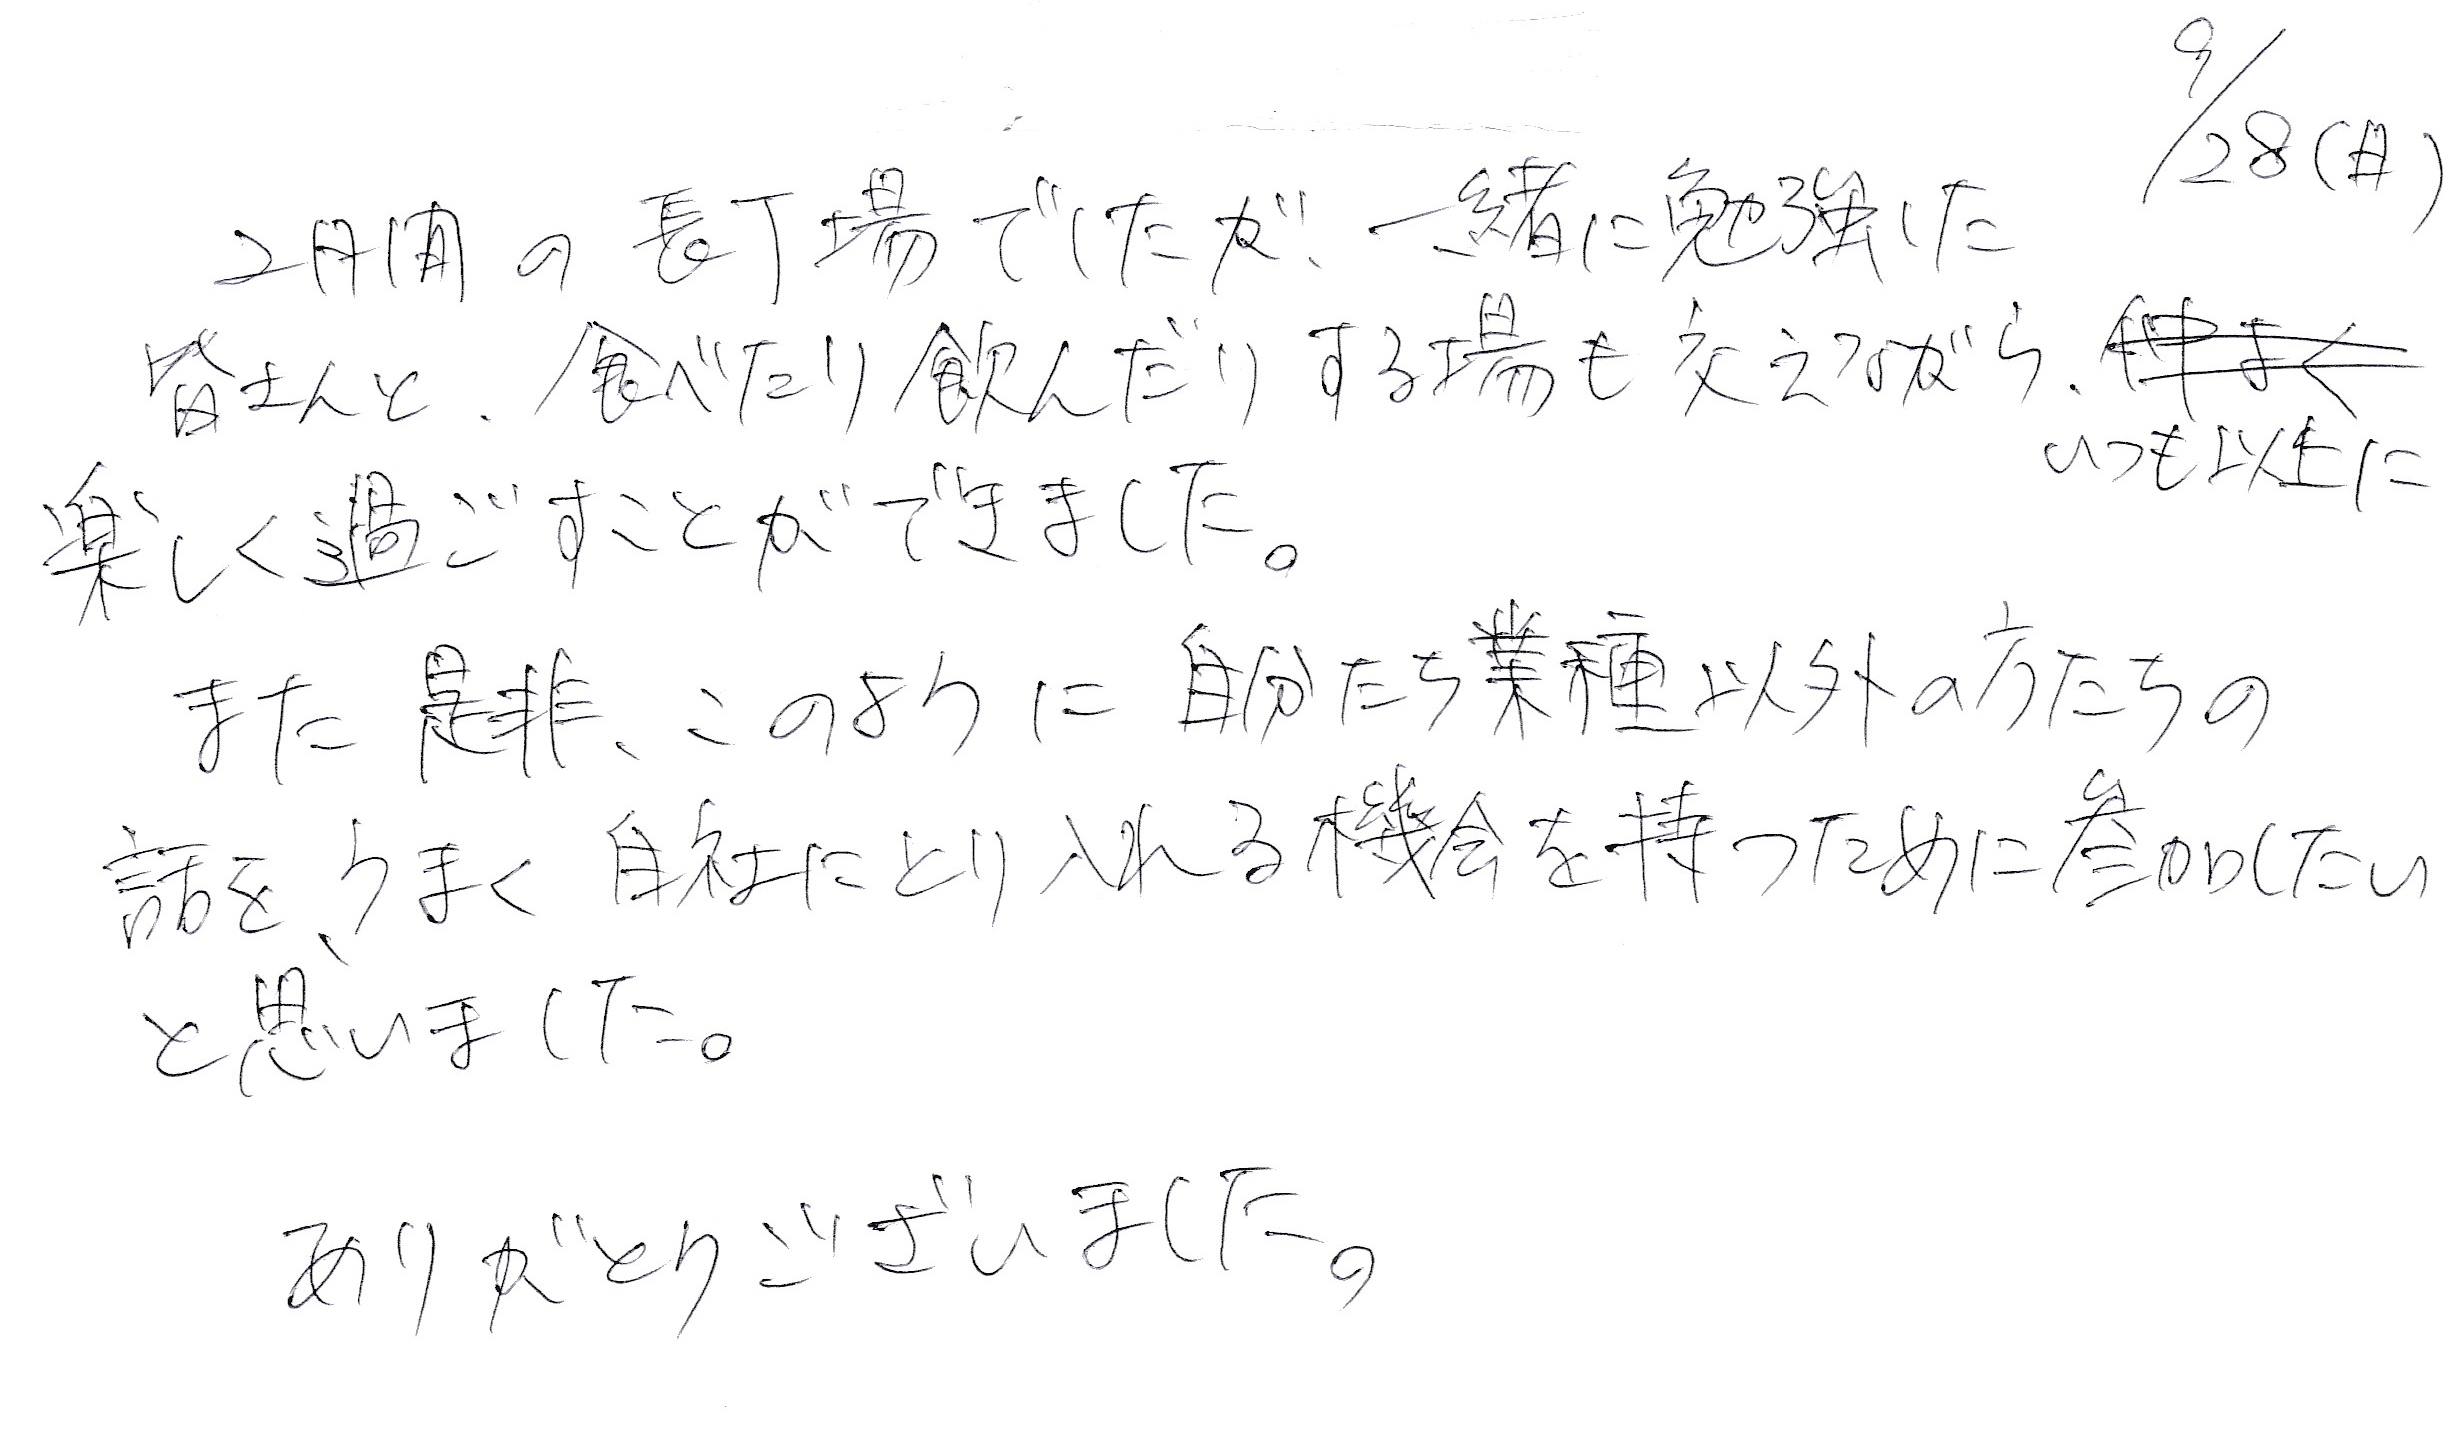 9/28(日)
2日間の長丁場でしたが、一緒に勉強した
皆さんと、食べたり飲んだりする場も交えながら、
いつも以上に
楽しく過ごすことができました。
また是非、このように自分たち業種以外の方たちの
話を、うまく自社にとり入れる機会を持つために参加したい
と思いました。
ありがとうございました。